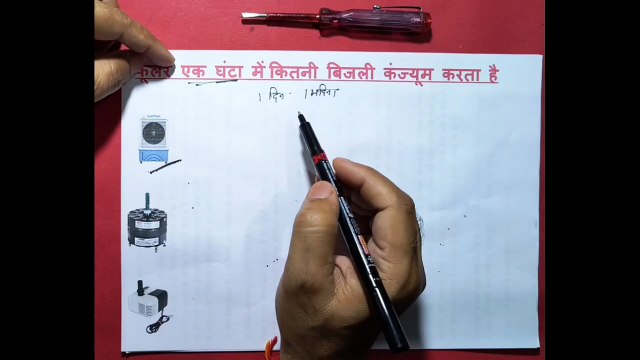 कूलर एक घंटा में कितनी बिजली कंज्यूम करता है
1 दिन 1 महिना